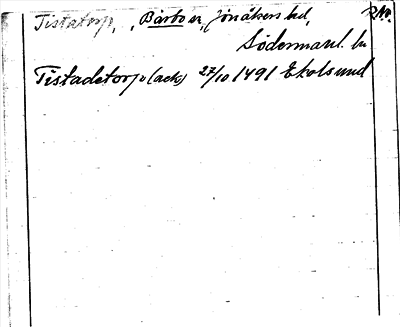 Tistatorp, Bärbo sn, Jönåkers hd,
Södermanl. ln
Tistadetorp (ack) 27/10 1491 Ekolsund